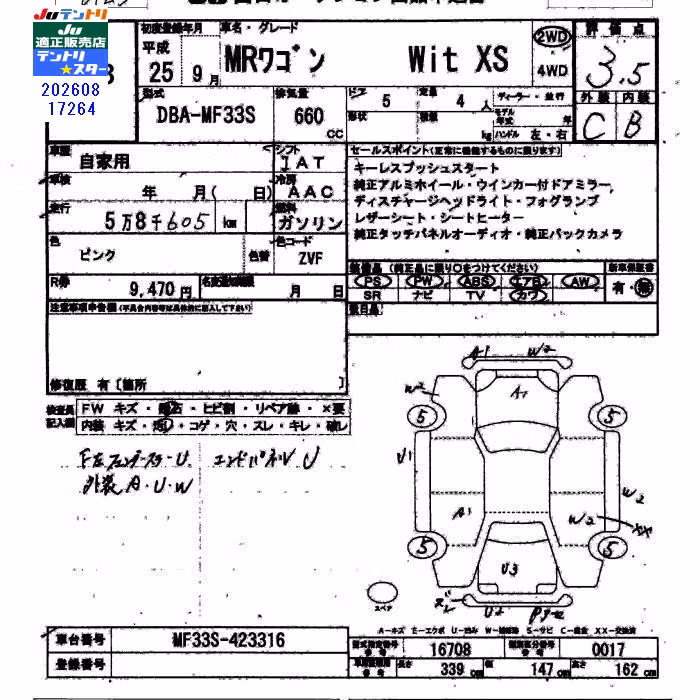 Juテントリ
Ju
適正販売店
テントリ
★スター
202608
17264
初度登録年月
車名・グレード
評価点
平成
25 9月
MRワゴン
Wit XS
2WD
4WD
3.5
型式
排気量
ドア
定員
外装 内装
DBA-MF33S
660
CC
5
4 人
形状
積載
kg
ハンドル 左・右
C B
車歴
自家用
シフト
IAT
セールスポイント(正常に機能するものに限ります)
車検
年 月( 日)
冷房
AAC
キーレスプッシュスタート
純正アルミホイール・ウインカー付ドアミラー
走行
5万8千605 km
燃料
ガソリン
ディスチャージヘッドライト・フォグランプ
レザーシート・シートヒーター
純正タッチパネルオーディオ・純正バックカメラ
色
ピンク
色替
色コード
ZVF
装備品 (純正品に限り○をつけてください)
新車保証書
R券
9,470 円
名義変更期限
月 日
PS PW ABS エアB AW
有・無
SR ナビ TV カワ
注意事項申告欄(不具合内容等は具体的に記入して下さい)
欠品
修復歴 有〔箇所 〕
検査員
記入欄
FW キズ・飛石・ヒビ割・リペア跡・×要
内装 キズ・汚レ・コゲ・穴・スレ・キレ・破レ
エンドパネルU
外装A・U・W
A1 W2
A1
W2
5 5
U1
W2
A1
W2
XX
5 5
U3
U2
スペア
A－キズ E－エクボ U－凹み W－補修跡 S－サビ C－腐食 XX－交換済
車台番号
MF33S-423316
型式指定番号
16708
類別区分番号
0017
登録番号
長さ
339 cm
幅
147 cm
高さ
162 cm